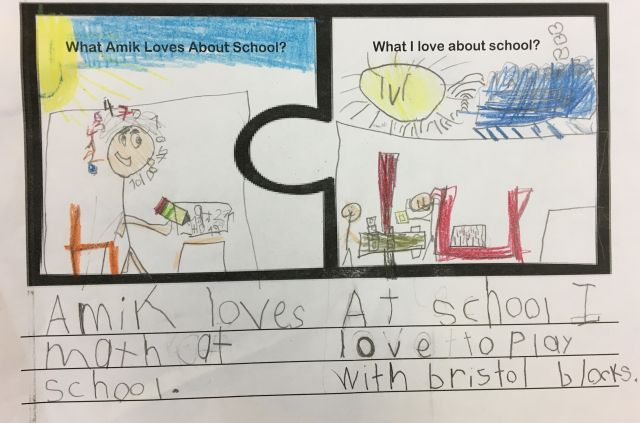 What Amik Loves About School?
What I love about school?
Amik loves
math at
school.
At school I
love to play
with bristol blocks.